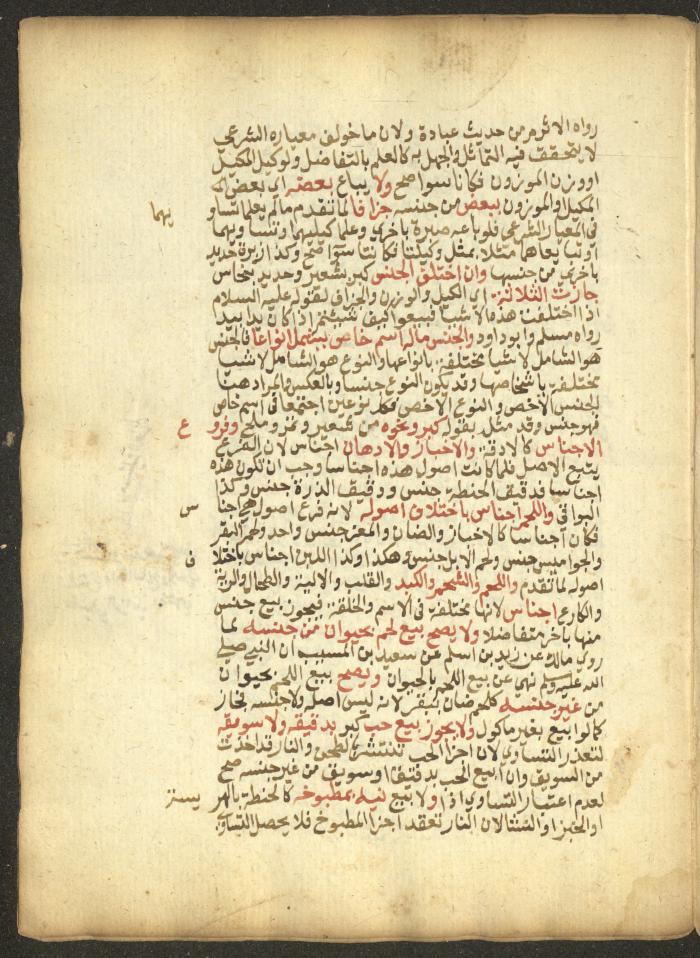 رواه الاثرم من حديث عبادة ولان ما خولف معياره الشرعي
لا يتحقق فيه التماثل والجهل به كالعلم بالتفاضل ولو كيل المكيل
او وزن الموزون فكانا سواء صح ولا يباع بعضه اي بعض
المكيل والموزون ببعض من جنسه جزافا لما تقدم ما لم يعلما تساو
يهما
في المعيار الشرعي فلو باعه صبرة باخرى وعلما كيليهما وتساويهما
او تبايعاها مثلا بمثل وكيلتا فكانتا سوآ صح وكذا زبرة حديد
باخرى من جنسها وان اختلف الجنس كبر بشعير وحديد بنحاس
جازت الثلاثة اي الكيل والوزن والجزاف لقوله عليه السلام
اذا اختلفت هذه الاشيا فبيعوا كيف شئتم اذا كان يدا بيد
رواه مسلم وابو داود والجنس ماله اسم خاص يشمل انواعا فالجنس
هو الشامل لاشيا مختلفة بانواعها والنوع هو الشامل لاشيا
مختلفة باشخاصها وقد يكون النوع جنسا وبالعكس والمراد هنا
الجنس الاخص والنوع الاخص فكل نوعين اجتمعا في اسم خاص
فهو جنس وقد مثل بقوله كبر ونحوه من شعير وتمر وملح وفرو
ع
الاجناس كالادقة والاخباز والادهان اجناس لان الفرع
يتبع الاصل فلما كانت اصول هذه اجناسا وجب ان تكون هذه
اجناسا فدقيق الحنطة جنس ودقيق الذرة جنس وكذا
البواقي واللحم اجناس باختلاف اصوله لانه فرع اصول هي اجنا
س
فكان اجناسا كالاخباز والضان والمعز جنس واحد ولحم البقر
والجواميس جنس ولحم الابل جنس وهكذا وكذا اللبن اجناس باختلا
ف
اصوله لما تقدم واللحم والشحم والكبد والقلب والالية والطحال والرية
والكارع اجناس لانها مختلفة في الاسم والخلقة فيجوز بيع جنس
منها باخر متفاضلا ولا يصح بيع لحم بحيوان من جنسه لما
روي مالك عن زيد بن اسلم عن سعيد بن المسيب ان النبي صلى
الله عليه وسلم نهى عن بيع اللحم بالحيوان ويصح بيع اللحم بحيوان
من غير جنسه كلحم ضان ببقر لانه ليس اصله ولا جنسه فجاز
كما لو بيع بغير ماكول ولا يجوز بيع حب كبر بدقيقه ولا سويقه
لتعذر التساوي لان اجزا الحب تنتشر بالطحن والنار قد اخذت
من السويق وان بيع الحب بدقيق او سويق من غير جنسه صح
لعدم اعتبار التساوي اذا ولا بيع نيه بمطبوخه كالحنطة بالهر
يسة
او الخبز او النشا لان النار تعقد اجزا المطبوخ فلا يحصل التساوي